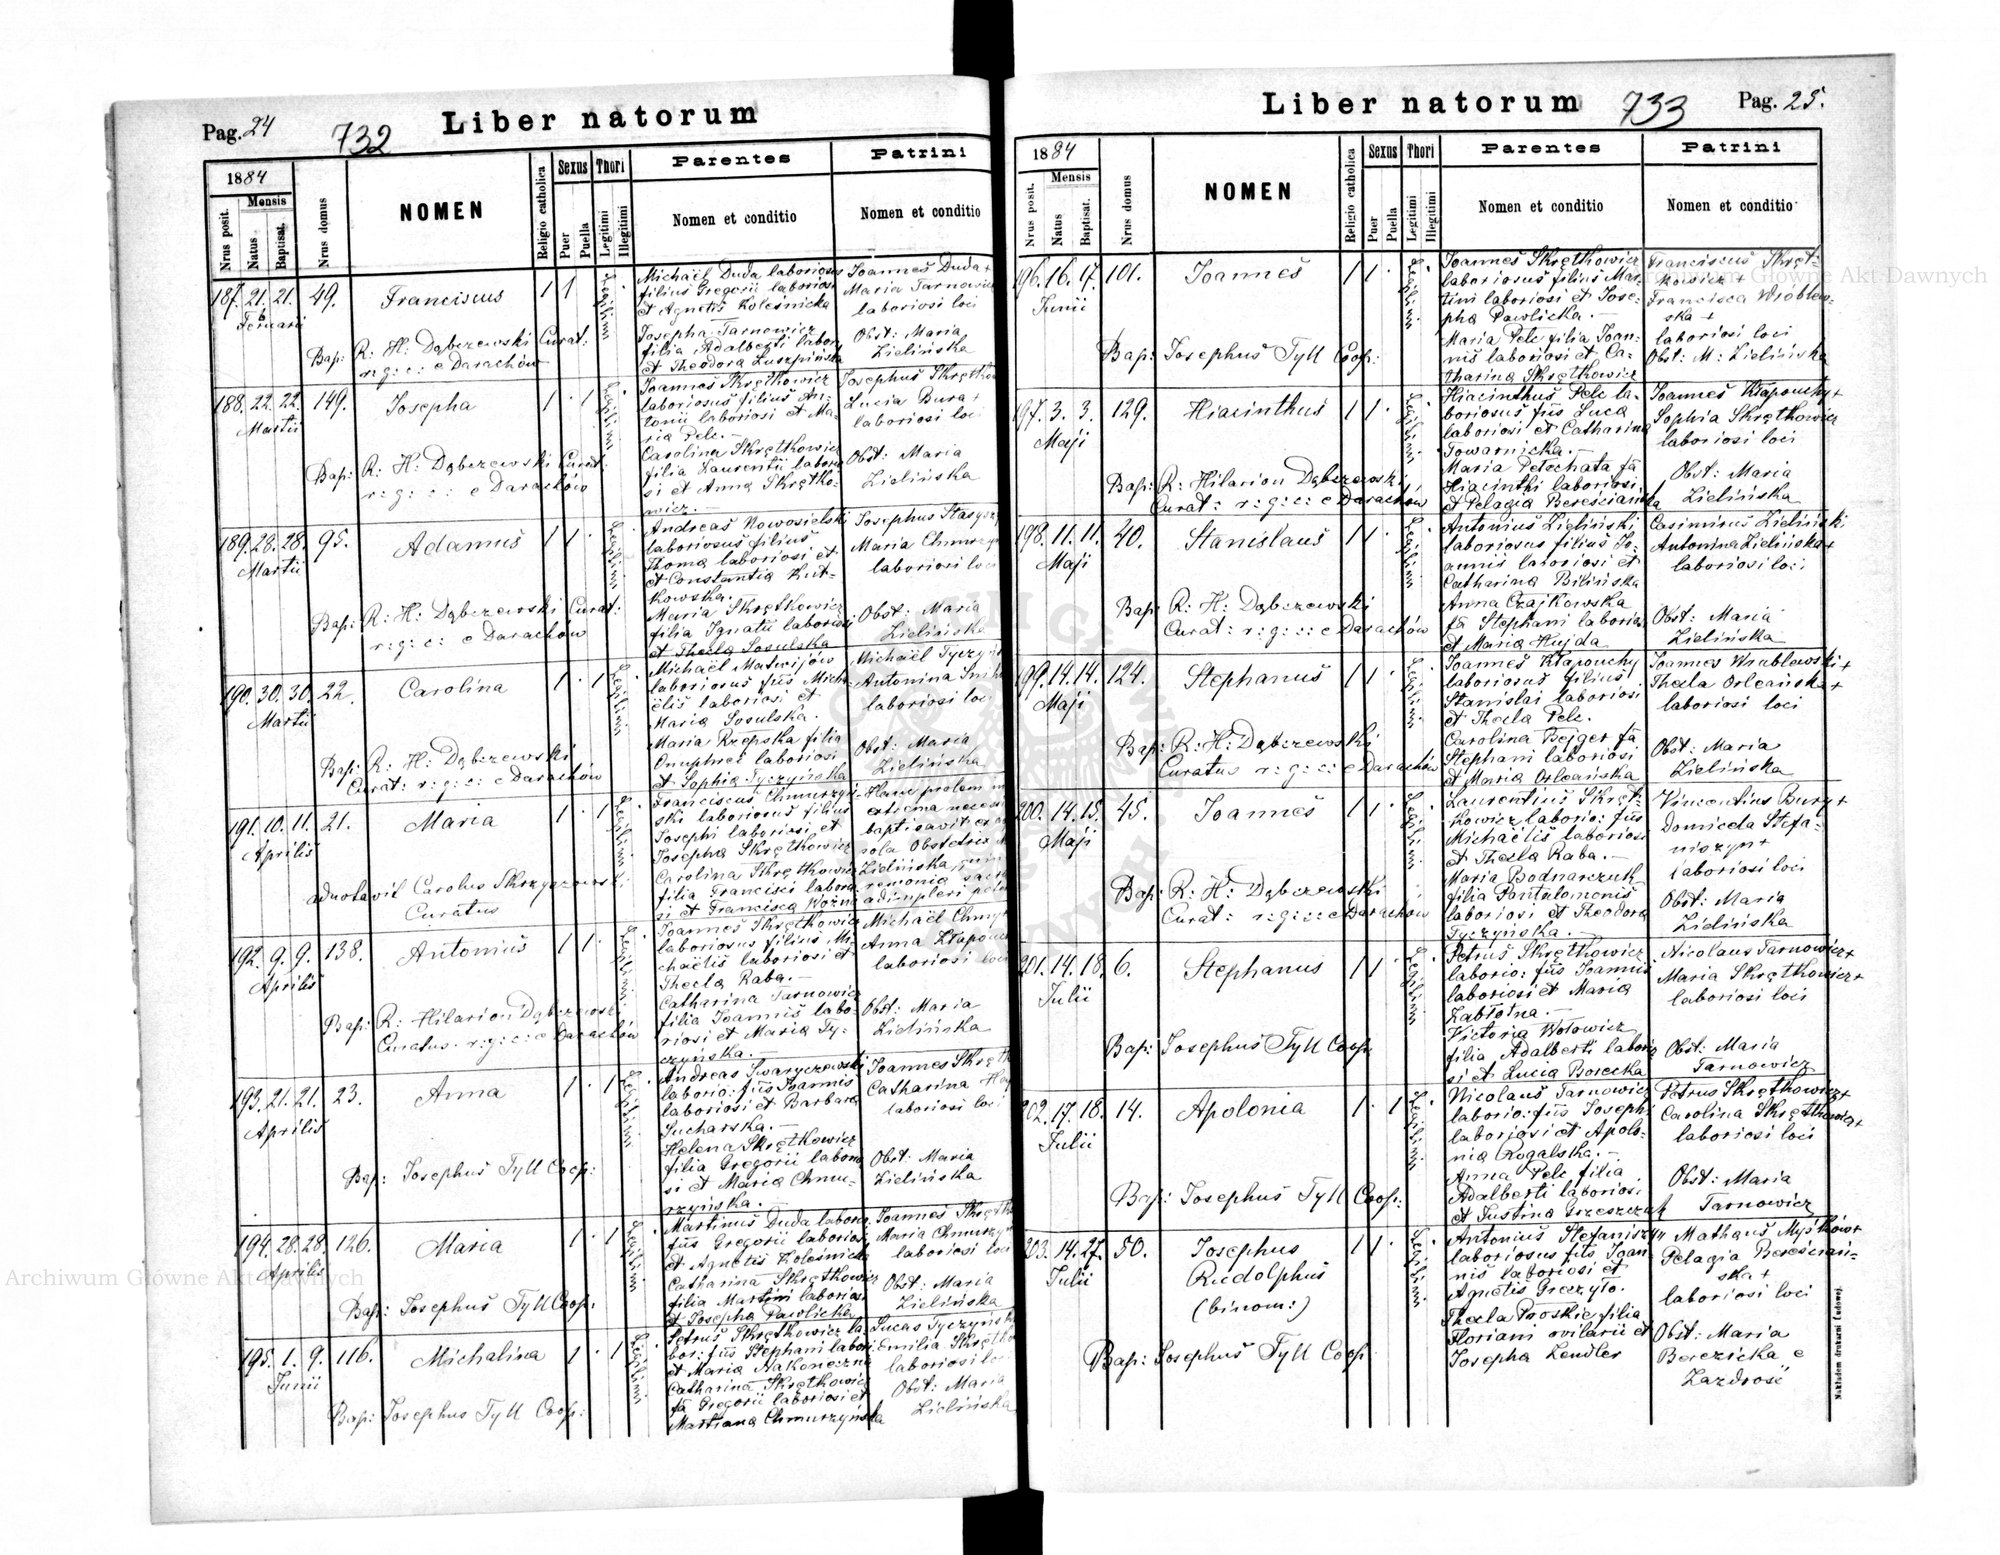 Pag. 24
732
Liber natorum
1884
Mensis
Nrus posit.
Natus
Baptisat.
Nrus domus
NOMEN
Religio catholica
Sexus
Puer
Puella
Thori
Legitimi
Illegitimi
Parentes
Nomen et conditio
Patrini
Nomen et conditio
187. 21. 21. 49. Franciscus 1 1
Bap: R: H: Dąbczewski Curat:
r: g: c: e Darachów
Michaël Duda laboriosus
filius Gregorii laboriosi
et Agnetis Kolesnicka
Josepha Tarnowicz
filia Adalberti labor
et Theodora Luszpińska
Joannes Duda +
Maria Tarnowicz
laboriosi loci
Obst: Maria
Zielińska
188. 22. 22. 149. Josepha 1 1
Martii
Bap: R: H: Dąbczewski Curat:
r: g: c: e Darachów
Joannes Skrętkowicz
laboriosus filius An-
tonii laboriosi et Ma-
ria Pelc.
Carolina Skrętkowicz
filia Laurentii laborio
si et Anna Skrętko-
wicz.
Josephus Skrętko
Lucia Bura +
laboriosi loci
Obst: Maria
Zielińska
189. 28. 28. 95. Adamus 1 1
Martii
Bap: R: H: Dąbczewski Curat:
r: g: c: e Darachów
Andreas Nowosielski
laboriosus filius
Thoma laboriosi et
et Constantia Rut-
kowska.
Maria Skrętkowicz
filia Ignatii laboriosi
et Thecla Sosulska
Josephus
Maria
laboriosi loci
Obst: Maria
Zielińska
190. 30. 30. 22. Carolina 1 1
Martii
Bap: R: H: Dąbczewski
Curat: r: g: c: e Darachów
Michaël Matwijów
laboriosus fius Micha-
ëlis laboriosi et
Maria Sosulska.
Maria Rzepska filia
Onuphrei laboriosi
et Sophia Tyczyńska
Michaël
Antonina
laboriosi loci
Obst: Maria
Zielińska
191. 10. 11. 21. Maria 1 1
Aprilis
adnotavit Carolus Skrzyszowski
Curatus
Franciscus Chmurzyń-
ski laboriosus filius
Josephi laboriosi et
Josepha Skrętkowicz
Carolina Skrętkowicz
filia Francisci laborio
si et Francisca Woźna
Hanc prolem in
extrema
baptisavit
sola Obstetrix
Zielińska,
192. 9. 9. 138. Antonius 1 1
Aprilis
Bap: R: Hilarion Dąbczewski
Curatus r: g: c: e Darachów
Joannes Skrętkowicz
laboriosus filius Mi-
chaëlis laboriosi et
Thecla Raba.
Catharina Tarnowicz
filia Joannis labo-
riosi et Maria Ty-
czyńska.
Michaël
Anna
laboriosi loci
Obst: Maria
Zielińska
193. 21. 21. 23. Anna 1 1
Aprilis
Bap: Josephus Tyll Coop:
Andreas Swaryczewski
laborio: fius Joannis
laboriosi et Barbara
Sucharska.
Helena Skrętkowicz
filia Gregorii laborio
si et Maria Chmu-
rzyńska.
Joannes
Catharina
laboriosi loci
Obst: Maria
Zielińska
194. 28. 28. 126. Maria 1 1
Aprilis
Bap: Josephus Tyll Coop:
Martinus Duda laborio
fius Gregorii laboriosi
et Agnetis Kolesnicka
Catharina Skrętkowicz
filia Martini laboriosi
et Josepha Pawlicka
Joannes
Maria
laboriosi loci
Obst: Maria
Zielińska
195. 1. 9. 116. Michalina 1 1
Junii
Bap: Josephus Tyll Coop:
Petrus Skrętkowicz la-
bor: fius Stephani labori:
et Maria Nakoneczna
Catharina Skrętkowicz
fa Gregorii laboriosi et
Martiana Chmurzyńska
Lucas
Emilia
laboriosi loci
Obst: Maria
Zielińska
Liber natorum
733
Pag. 25.
1884
Mensis
Nrus posit.
Natus
Baptisat.
Nrus domus
NOMEN
Religio catholica
Sexus
Puer
Puella
Thori
Legitimi
Illegitimi
Parentes
Nomen et conditio
Patrini
Nomen et conditio
196. 16. 17. 101. Joannes 1 1
Junii
Bap: Josephus Tyll Coop:
Joannes Skrętkowicz
laboriosus filius Mar-
tini laboriosi et Jose-
pha Pawlicka.
Maria Pelc filia Joan-
nis laboriosi et Ca-
tharina Skrętkowicz
Franciscus Skręt-
kowicz +
Francisca Wróblew-
ska +
laboriosi loci
Obst: M: Zielińska
197. 3. 3. 129. Hiacinthus 1 1
Maji
Bap: R: Hilarion Dąbczewski
Curat: r: g: c: e Darachów
Hiacinthus Pelc la-
boriosus fius Luca
laboriosi et Catharina
Towarnicka.
Maria Petechata fa
Hiacinthi laboriosi
et Pelagia Bereściańska
Joannes Kłapouchy +
Sophia Skrętkowicz
laboriosi loci
Obst: Maria
Zielińska
198. 11. 11. 40. Stanislaus 1 1
Maji
Bap: R: H: Dąbczewski
Curat: r: g: c: e Darachów
Antonius Zieliński
laboriosus filius Jo-
annis laboriosi et
Catharina Bilińska
Anna Czajkowska
fa Stephani laborio
et Maria Hujda
Casimirus Zieliński
Antonina Zielińska +
laboriosi loci
Obst: Maria
Zielińska
199. 14. 14. 124. Stephanus 1 1
Maji
Bap: R: H: Dąbczewski
Curatus r: g: c: e Darachów
Joannes Kłapouchy
laboriosus filius
Stanislai laboriosi
et Thecla Pelc.
Carolina Bejger fa
Stephani laboriosi
et Maria Orleańska
Joannes Wrublewski +
Thecla Orleańska +
laboriosi loci
Obst: Maria
Zielińska
200. 14. 15. 45. Joannes 1 1
Maji
Bap: R: H: Dąbczewski
Curat: r: g: c: e Darachów
Laurentius Skręt-
kowicz laborio: fius
Michaëlis laboriosi
et Thecla Raba.
Maria Bodnarczuk
filia Pantalemonis
laboriosi et Theodora
Tyczyńska.
Vincentius Bury +
Domicela Stefa-
niszyn +
laboriosi loci
Obst: Maria
Zielińska
201. 14. 18. 6. Stephanus 1 1
Julii
Bap: Josephus Tyll Coop:
Petrus Skrętkowicz
laborio: fius Joannis
laboriosi et Maria
Zabłotna.
Victoria Wołowicz
filia Adalberti laborio
si et Lucia Borecka
Nicolaus Tarnowicz +
Maria Skrętkowicz +
laboriosi loci
Obst: Maria
Tarnowicz
202. 17. 18. 14. Apolonia 1 1
Julii
Bap: Josephus Tyll Coop:
Nicolaus Tarnowicz
laborio: fius Josephi
laboriosi et Apolo-
nia Rogalska.
Anna Pelc filia
Adalberti laboriosi
et Justina Grzeszczuk
Petrus Skrętkowicz +
Carolina Skrętkowicz +
laboriosi loci
Obst: Maria
Tarnowicz
203. 14. 27. 50. Josephus 1 1
Julii
Rudolphus
(binom:)
Bap: Josephus Tyll Coop
Antonius Stefaniszyn
laboriosus fius Joan-
nis laboriosi et
Agnetis Greczyło.
Thecla Proskie filia
Floriani ovilarii et
Josepha Lendler
Mathaus Myśków +
Pelagia Bereściań-
ska +
laboriosi loci
Obst: Maria
Berezicka e
Zazdrość
Nakładem drukarni Ludowej.
Archiwum Główne Akt Dawnych
Archiwum Główne Akt Dawnych